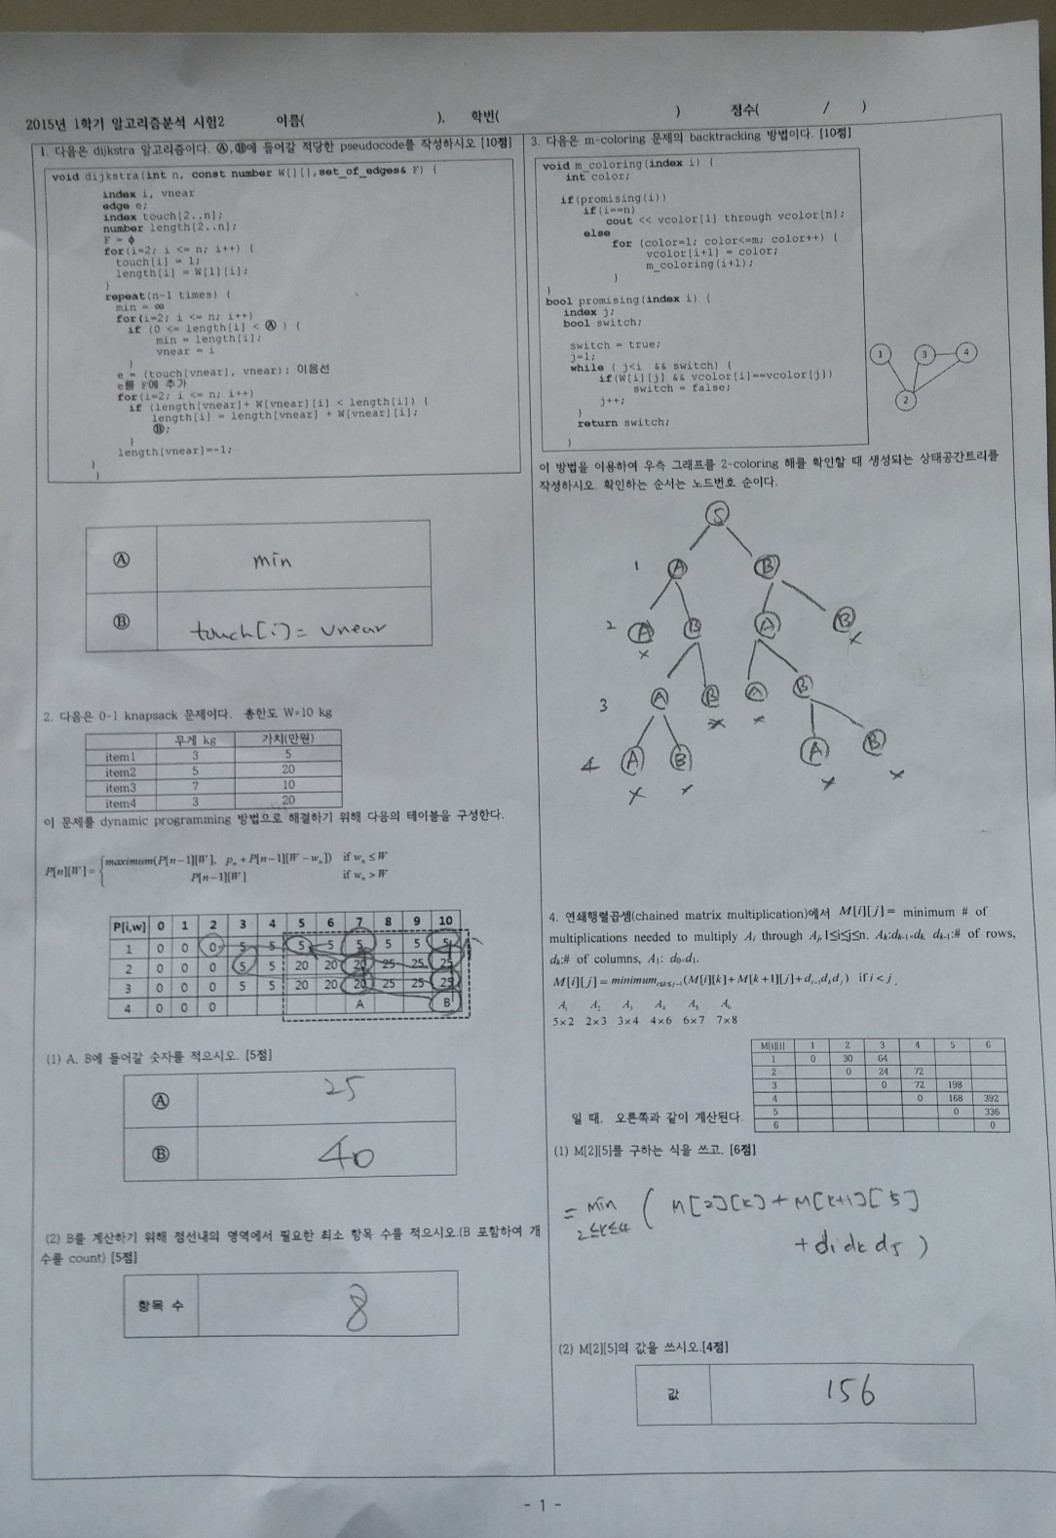 2015년 1학기 알고리즘분석 시험2 이름( ), 학번( ) 점수( / )
1. 다음은 dijkstra 알고리즘이다. Ⓐ,Ⓑ에 들어갈 적당한 pseudocode를 작성하시오 [10점]
void dijkstra(int n, const number W[][],set_of_edges& F) {
index i, vnear
edge e;
index touch[2..n];
number length[2..n];
F = ϕ
for(i=2; i <= n; i++) {
touch[i] = 1;
length[i] = W[1][i];
}
repeat(n-1 times) {
min = ∞
for(i=2; i <= n; i++)
if (0 <= length[i] < Ⓐ ) {
min = length[i];
vnear = i
}
e = (touch[vnear], vnear): 이음선
e를 F에 추가
for(i=2; i <= n; i++)
if (length[vnear]+ W[vnear][i] < length[i]) {
length[i] = length[vnear] + W[vnear][i];
Ⓑ;
}
length[vnear]=-1;
}
}
Ⓐ min
Ⓑ touch[i] = vnear
2. 다음은 0-1 knapsack 문제이다. 총한도 W=10 kg
무게 kg 가치(만원)
item1 3 5
item2 5 20
item3 7 10
item4 3 20
이 문제를 dynamic programming 방법으로 해결하기 위해 다음의 테이블을 구성한다.
P[n][W] = { maximum(P[n-1][W], pn + P[n-1][W-wn]) if wn ≤ W
P[n-1][W] if wn > W
P[i,w] 0 1 2 3 4 5 6 7 8 9 10
1 0 0 0 5 5 5 5 5 5 5 5
2 0 0 0 5 5 20 20 20 25 25 25
3 0 0 0 5 5 20 20 20 25 25 25
4 0 0 0 A B
(1) A, B에 들어갈 숫자를 적으시오. [5점]
Ⓐ 25
Ⓑ 40
(2) B를 계산하기 위해 점선내의 영역에서 필요한 최소 항목 수를 적으시오.(B 포함하여 개
수를 count) [5점]
항목 수 8
3. 다음은 m-coloring 문제의 backtracking 방법이다. [10점]
void m_coloring(index i) {
int color;
if(promising(i))
if(i==n)
cout << vcolor[1] through vcolor[n];
else
for (color=1; color<=m; color++) {
vcolor[i+1] = color;
m_coloring(i+1);
}
}
bool promising(index i) {
index j;
bool switch;
switch = true;
j=1;
while ( j<i && switch) {
if(W[i][j] && vcolor[i]==vcolor[j])
switch = false;
j++;
}
return switch;
}
1 3 4
2
이 방법을 이용하여 우측 그래프를 2-coloring 해를 확인할 때 생성되는 상태공간트리를
작성하시오. 확인하는 순서는 노드번호 순이다.
S
1 A B
2 A B A B
x x
3 A B A B
x x
4 A B A B
x x x x
4. 연쇄행렬곱셈(chained matrix multiplication)에서 M[i][j]= minimum # of
multiplications needed to multiply Ai through Aj, 1≤i≤j≤n. Ak:dk-1×dk dk-1:# of rows,
dk:# of columns, A1: d0×d1.
M[i][j] = minimum i≤k≤j-1 (M[i][k]+M[k+1][j]+di-1dkdj) if i < j .
A1 A2 A3 A4 A5 A6
5×2 2×3 3×4 4×6 6×7 7×8
M[i][j] 1 2 3 4 5 6
1 0 30 64
2 0 24 72
3 0 72 198
4 0 168 392
5 0 336
6 0
일 때, 오른쪽과 같이 계산된다.
(1) M[2][5]를 구하는 식을 쓰고, [6점]
= min 2≤k≤4 ( M[2][k] + M[k+1][5]
+ d1 dk d5 )
(2) M[2][5]의 값을 쓰시오.[4점]
값 156
- 1 -